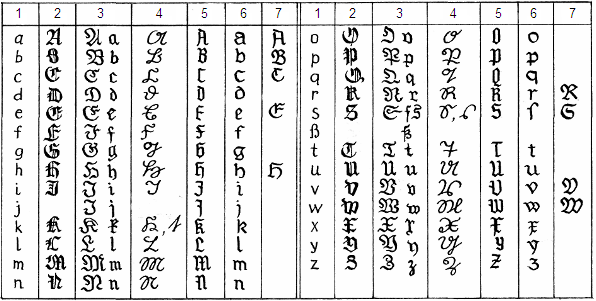 1 2 3 4 5 6 7 1 2 3 4 5 6 7
a A A a A A a A o O O o O O o
b B B b B B b B p P P p P P p
c C C c C C c C q Q Q q Q Q q
d D D d D D d r R R r R R r R
e E E e E E e E s S S ſ s S, S S ſ S
f F F f F F f ß ß
g G G g G G g t T T t T T t
h H H h H H h H u U U u U U u
i I I i I I i v V V v V V v V
j J j J j w W W w W W w W
k K K k K, K K k x X X x X X x
l L L l L L l y Y Y y Y Y y
m M M m M M m z Z Z z Z Z z
n N N n N N n